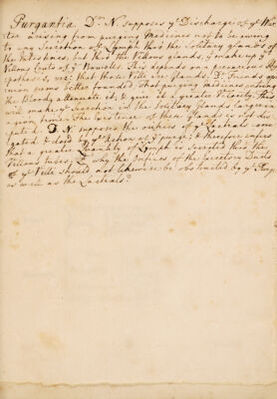 Purgantia Dr. N. supposes ye Discharge of ye Wa
ter arising from purging Medicines not to be owing
to any Secretion of Lymph thro the solitary glands of
the Intestines, but thro the Villous glands, yt make up ye
Villous Coats of ye Bowells. This depends on a precarious Hy
pothesis, viz: that those Villi are glands. Dr. Friends op
inion seems better founded, that purging medicines entring
the Blood, attenuate it, & give it a greater Velocity. This
will make ye Secretion in the solitary Glands larger in
a given time. The Existence of these glands is not dis
puted. D. N. supposes the orifices of ye Lacteals con
by ye Action of ye purge, & therefore infers
that a greater Quantity of Lymph is secreted thro the
Villous tubes; & why the Orifices of the Secretory Ducts
of ye Villi should not likewise be obstructed by ye Purge
as well as the Lacteals?